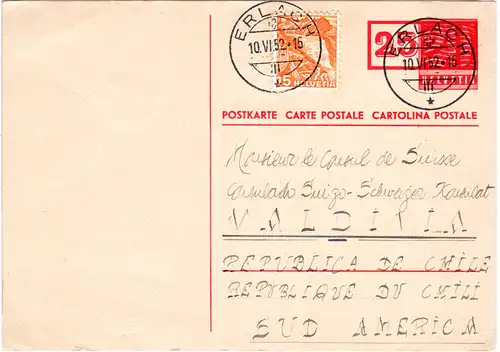 ERLACH
10.VI.52-15
ERLACH
10.VI.52-15
25
HELVETIA
HELVETIA
POSTKARTE CARTE POSTALE CARTOLINA POSTALE
Monsieur le Consul de Suisse
Consulado Suizo-Schweizer Konsulat
VALDIVIA
REPÚBLICA DE CHILE
REPUBLIQUE DU CHILI
SUD AMERICA